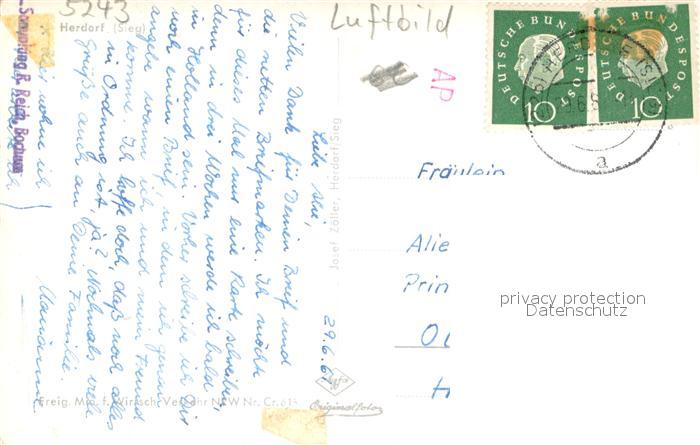 5243
Luftbild
AP
Herdorf (Sieg)
Sammlung R. Reich, Bochum
29.6.61
Liebe Alie,
Vielen Dank für Deinen Brief und
die netten Briefmarken. Ich möchte
für dieses Mal nur eine Karte schreiben,
denn in drei Wochen werde ich bald
in Holland sein. Vorher schreibe ich Dir
noch einen Brief, in dem ich genau
angebe wann ich und mein Freund
komme. Ich hoffe doch, daß noch alles
in Ordnung ist, ja? Nochmals viele
Grüße auch an Deine Familie.
wohne ich
Josef Zöller, Herdorf/Sieg
Freig. Min. f. Wirtsch. Verkehr NRW Nr. Cr. 613
Agfa
Originalfoto
DEUTSCHE BUNDESPOST
10
DEUTSCHE BUNDESPOST
10
a
Fräulein
Alie
Prin
privacy protection
Datenschutz